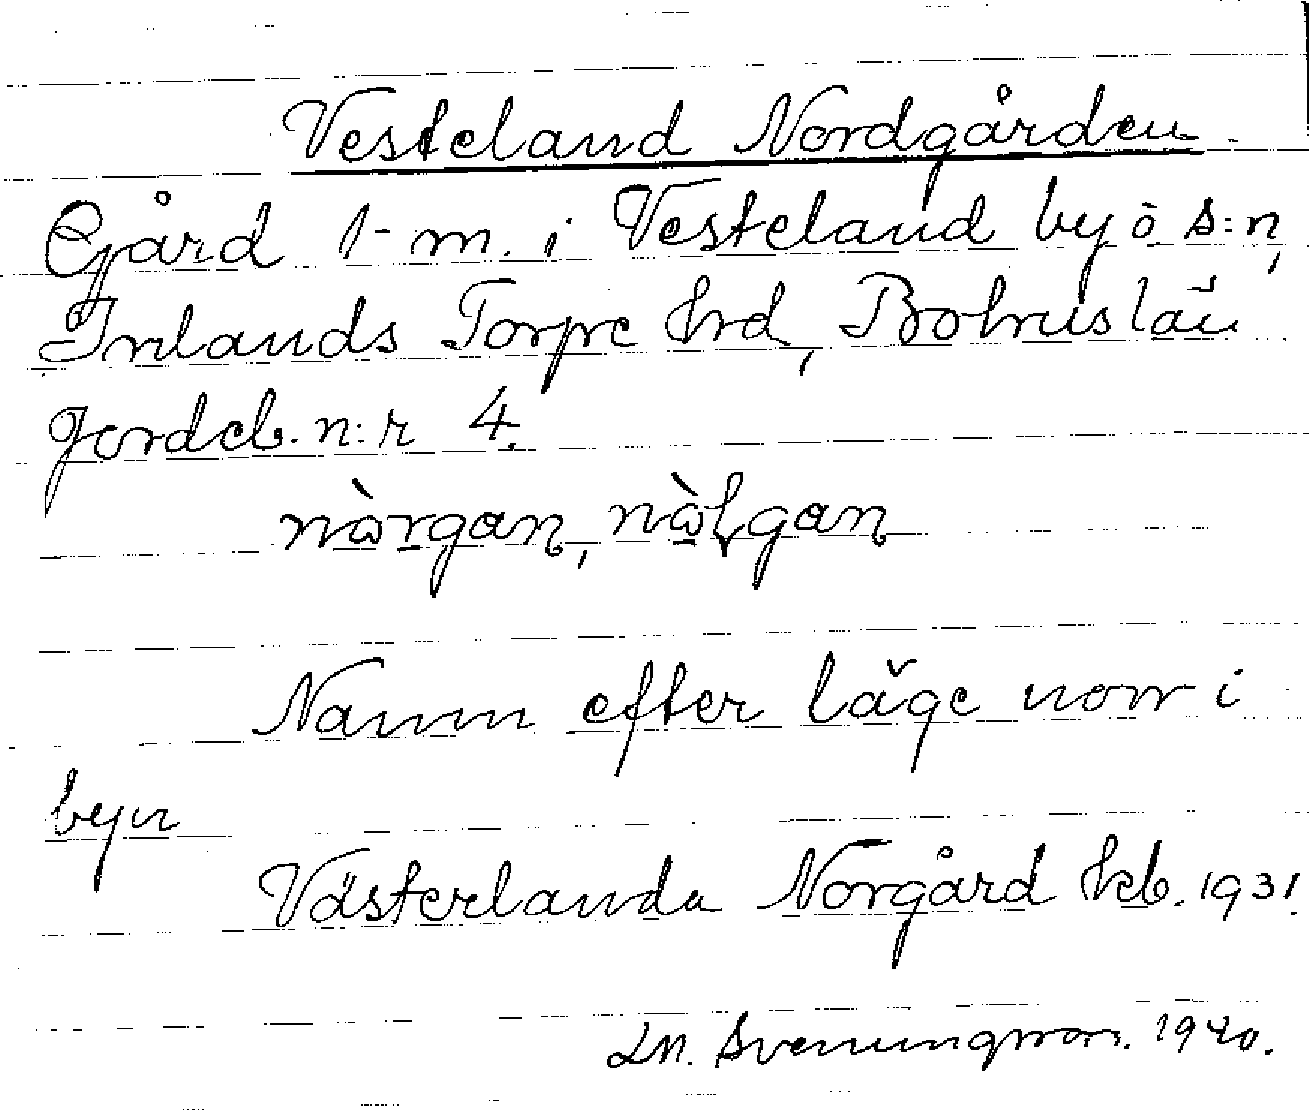 Vesteland Nordgården
Gård 1 m. i Vesteland by o s:n,
Inlands Torpe hrd, Bohuslän
Jordeb. n:r 4.
nàrgan, nàlgan
Namn efter läge norr i
byn
Västerlanda Norgård kb. 1931.
Svenungsson. 1940.